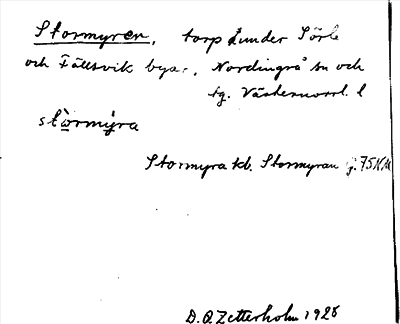 Stormyren, torp under Sörle
och Fällsvik byar, Nordingrå sn och
tg. Västernorrl. l
stòrmỳra
Stormyra kb. Stormyran j. 75 KM
D. O. Zetterholm 1928